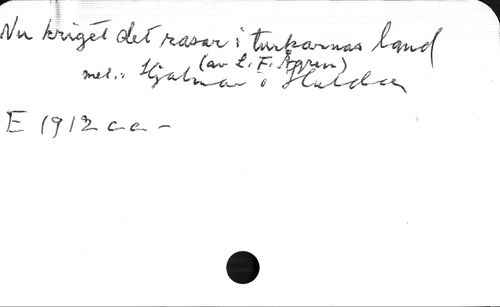 Nu kriget det rasar i turkarnas land
(av L. F. Ågren)
mel.: Hjalmar o Hulda
E 1912 c a -